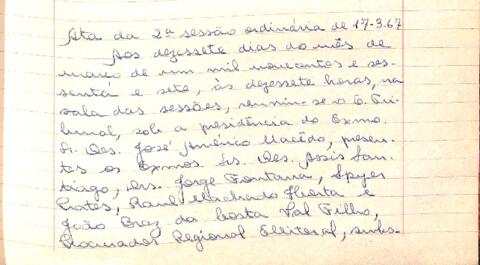 Ata da 2ª sessão ordinária de 17-3.67
Aos dezessete dias do mês de
março de um mil novecentos e ses-
senta e sete, às dezessete horas, na
sala das sessões, reuniu-se o E. Tri-
bunal, sob a presidência do Exmo.
Sr. Des. José Américo Macêdo, presen-
tes os Exmos. Srs. Des. Assis San-
tiago, Drs. Jorge Fontana, Spyer
Prates, Raul Machado Horta e
João Braz da Costa Val Filho,
Procurador Regional Eleitoral, subs-